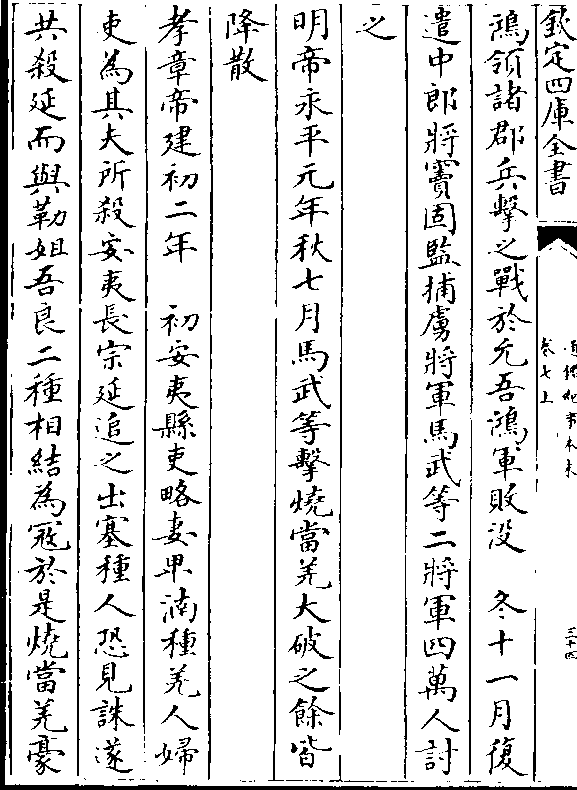 欽定四庫全書
通鑑紀事本末
卷七上
三十四
鴻領諸郡兵擊之戰於允吾鴻軍敗沒　冬十一月復
遣中郎將竇固監捕虜將軍馬武等二將軍四萬人討
之
明帝永平元年秋七月馬武等擊燒當羌大破之餘皆
降散
孝章帝建初二年　初安夷縣吏略妻卑湳種羌人婦
吏為其夫所殺安夷長宗延追之出塞種人恐見誅遂
共殺延而與勒姐吾良二種相結為冦於是燒當羌豪